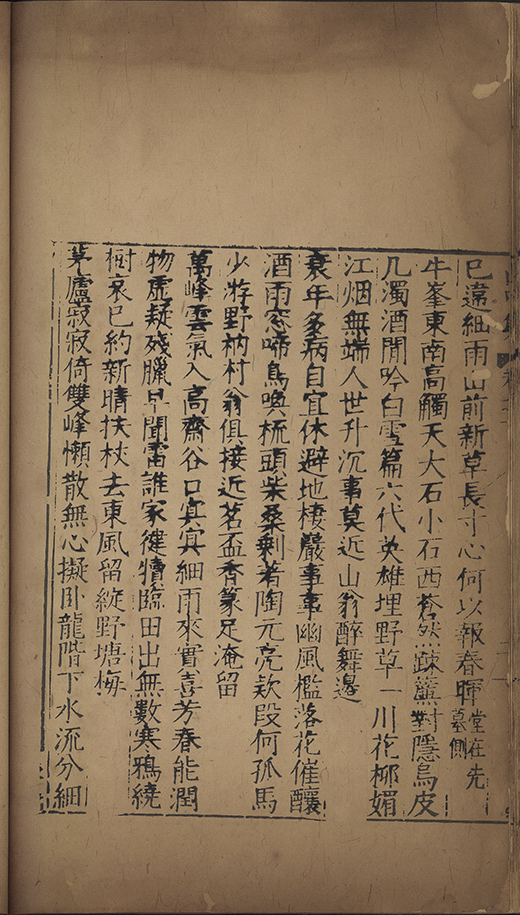 已違細雨山前新草長寸心何以報春暉堂在先墓側
牛峯東南高觸天大石小石西蒼然踈簾對隱烏皮
几濁酒閒吟白雪篇六代英雄埋野草一川花柳媚
江烟無端人世升沉事莫近山翁醉舞邊
衰年多病自宜休避地棲巖事事幽風檻落花催釀
酒雨窓啼鳥喚梳頭柴桑剩著陶元亮欵段何孤馬
少游野衲村翁俱接近茗盃香篆足淹留
萬峰雲氣入高齋谷口冥冥細雨來實喜芳春能潤
物虛疑殘臘早聞雷誰家健犢臨田出無數寒鴉繞
樹哀已約新晴扶杖去東風留綻野塘梅
茅廬寂寂倚雙峰懶散無心擬卧龍階下水流分細